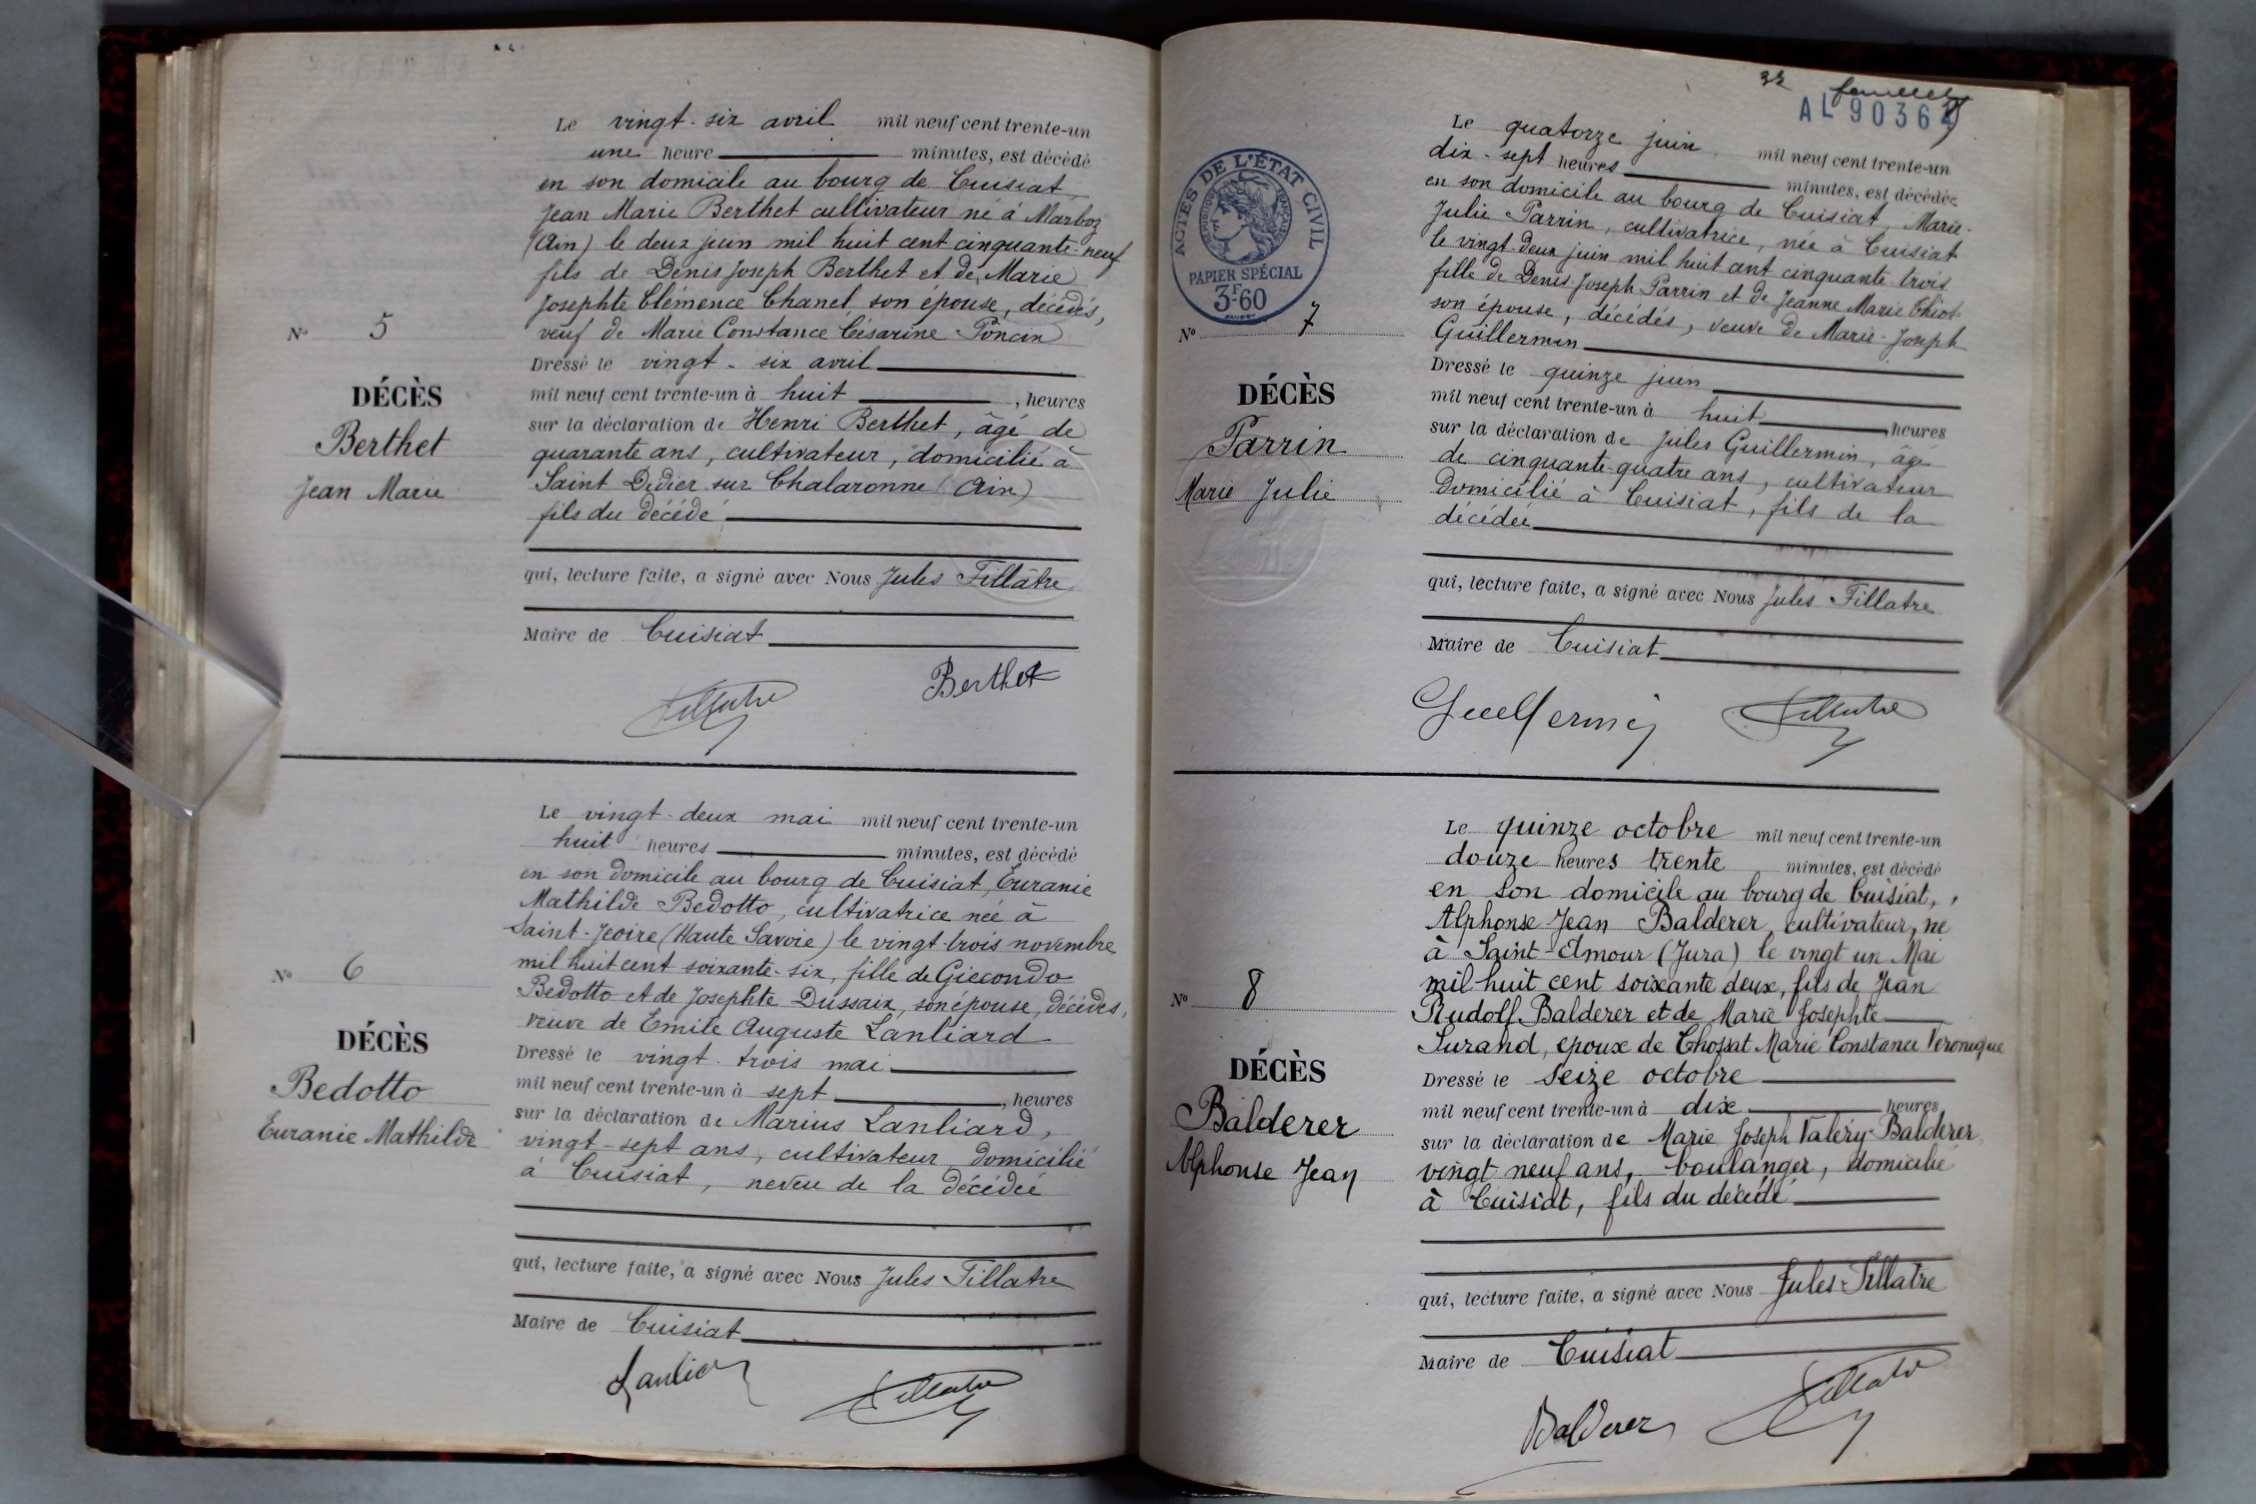 Le vingt-six avril mil neuf cent trente-un
une heure minutes, est décédé
en son domicile au bourg de Cuisiat
Jean Marie Berthet cultivateur né à Marboz
(Ain) le deux juin mil huit cent cinquante-neuf
fils de Denis Joseph Berthet et de Marie
Josephte Clémence Chanel son épouse, décédés,
veuf de Marie Constance Césarine Poncin
Dressé le vingt-six avril
mil neuf cent trente-un à huit, heures
sur la déclaration de Henri Berthet, âgé de
quarante ans, cultivateur, domicilié à
Saint Didier sur Chalaronne (Ain)
fils du décédé
qui, lecture faite, a signé avec Nous Jules Tillâtre
Maire de Cuisiat
Berthet
Tillatre
N° 5
DÉCÈS
Berthet
Jean Marie
Le vingt-deux mai mil neuf cent trente-un
huit heures minutes, est décédé
en son domicile au bourg de Cuisiat, Euranie
Mathilde Bedotto, cultivatrice née à
Saint-Jeoire (Haute Savoie) le vingt-trois novembre
mil huit cent soixante-six, fille de Giecondo
Bedotto et de Josephte Dussaix, son épouse, décédés,
veuve de Emile Auguste Lanliard
Dressé le vingt-trois mai
mil neuf cent trente-un à sept, heures
sur la déclaration de Marius Lanliard,
vingt-sept ans, cultivateur domicilié
à Cuisiat, neveu de la décédée
qui, lecture faite, a signé avec Nous Jules Tillatre
Maire de Cuisiat
Tillatre
N° 6
DÉCÈS
Bedotto
Euranie Mathilde
32
AL 90364
ACTES DE L'ÉTAT CIVIL
RÉPUBLIQUE FRANÇAISE
PAPIER SPÉCIAL
3F60
Le quatorze juin mil neuf cent trente-un
dix-sept heures minutes, est décédée
en son domicile au bourg de Cuisiat, Marie-
Julie Parrin, cultivatrice, née à Cuisiat
le vingt-deux juin mil huit cent cinquante-trois
fille de Denis-Joseph Parrin et de Jeanne Marie Chiot
son épouse, décédés, veuve de Marie-Joseph
Guillermin
Dressé le quinze juin
mil neuf cent trente-un à huit, heures
sur la déclaration de Jules Guillermin, âgé
de cinquante-quatre ans, cultivateur
domicilié à Cuisiat, fils de la
décédée
qui, lecture faite, a signé avec Nous Jules Tillatre
Maire de Cuisiat
Guillermin Tillatre
N° 7
DÉCÈS
Parrin
Marie Julie
Le quinze octobre mil neuf cent trente-un
douze heures trente minutes, est décédé
en son domicile au bourg de Cuisiat,
Alphonse Jean Balderer, cultivateur, né
à Saint-Amour (Jura) le vingt un Mai
mil huit cent soixante deux, fils de Jean
Rudolf Balderer et de Marie Josephte
Surand, epoux de Chossat Marie Constance Veronique
Dressé le seize octobre
mil neuf cent trente-un à dix heures
sur la déclaration de Marie Joseph Valéry Balderer
vingt neuf ans, boulanger, domicilié
à Cuisiat, fils du décédé
qui, lecture faite, a signé avec Nous Jules Tillatre
Maire de Cuisiat
Balderer Tillatre
N° 8
DÉCÈS
Balderer
Alphonse Jean